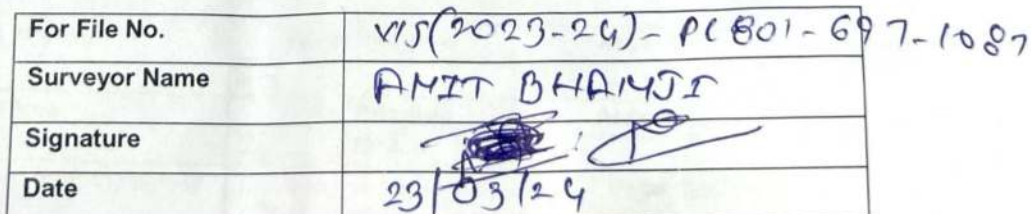 For File No. VIS(2023-24)-PL801-697-1087
Surveyor Name AMIT BHAMJI
Signature
Date 23/03/24